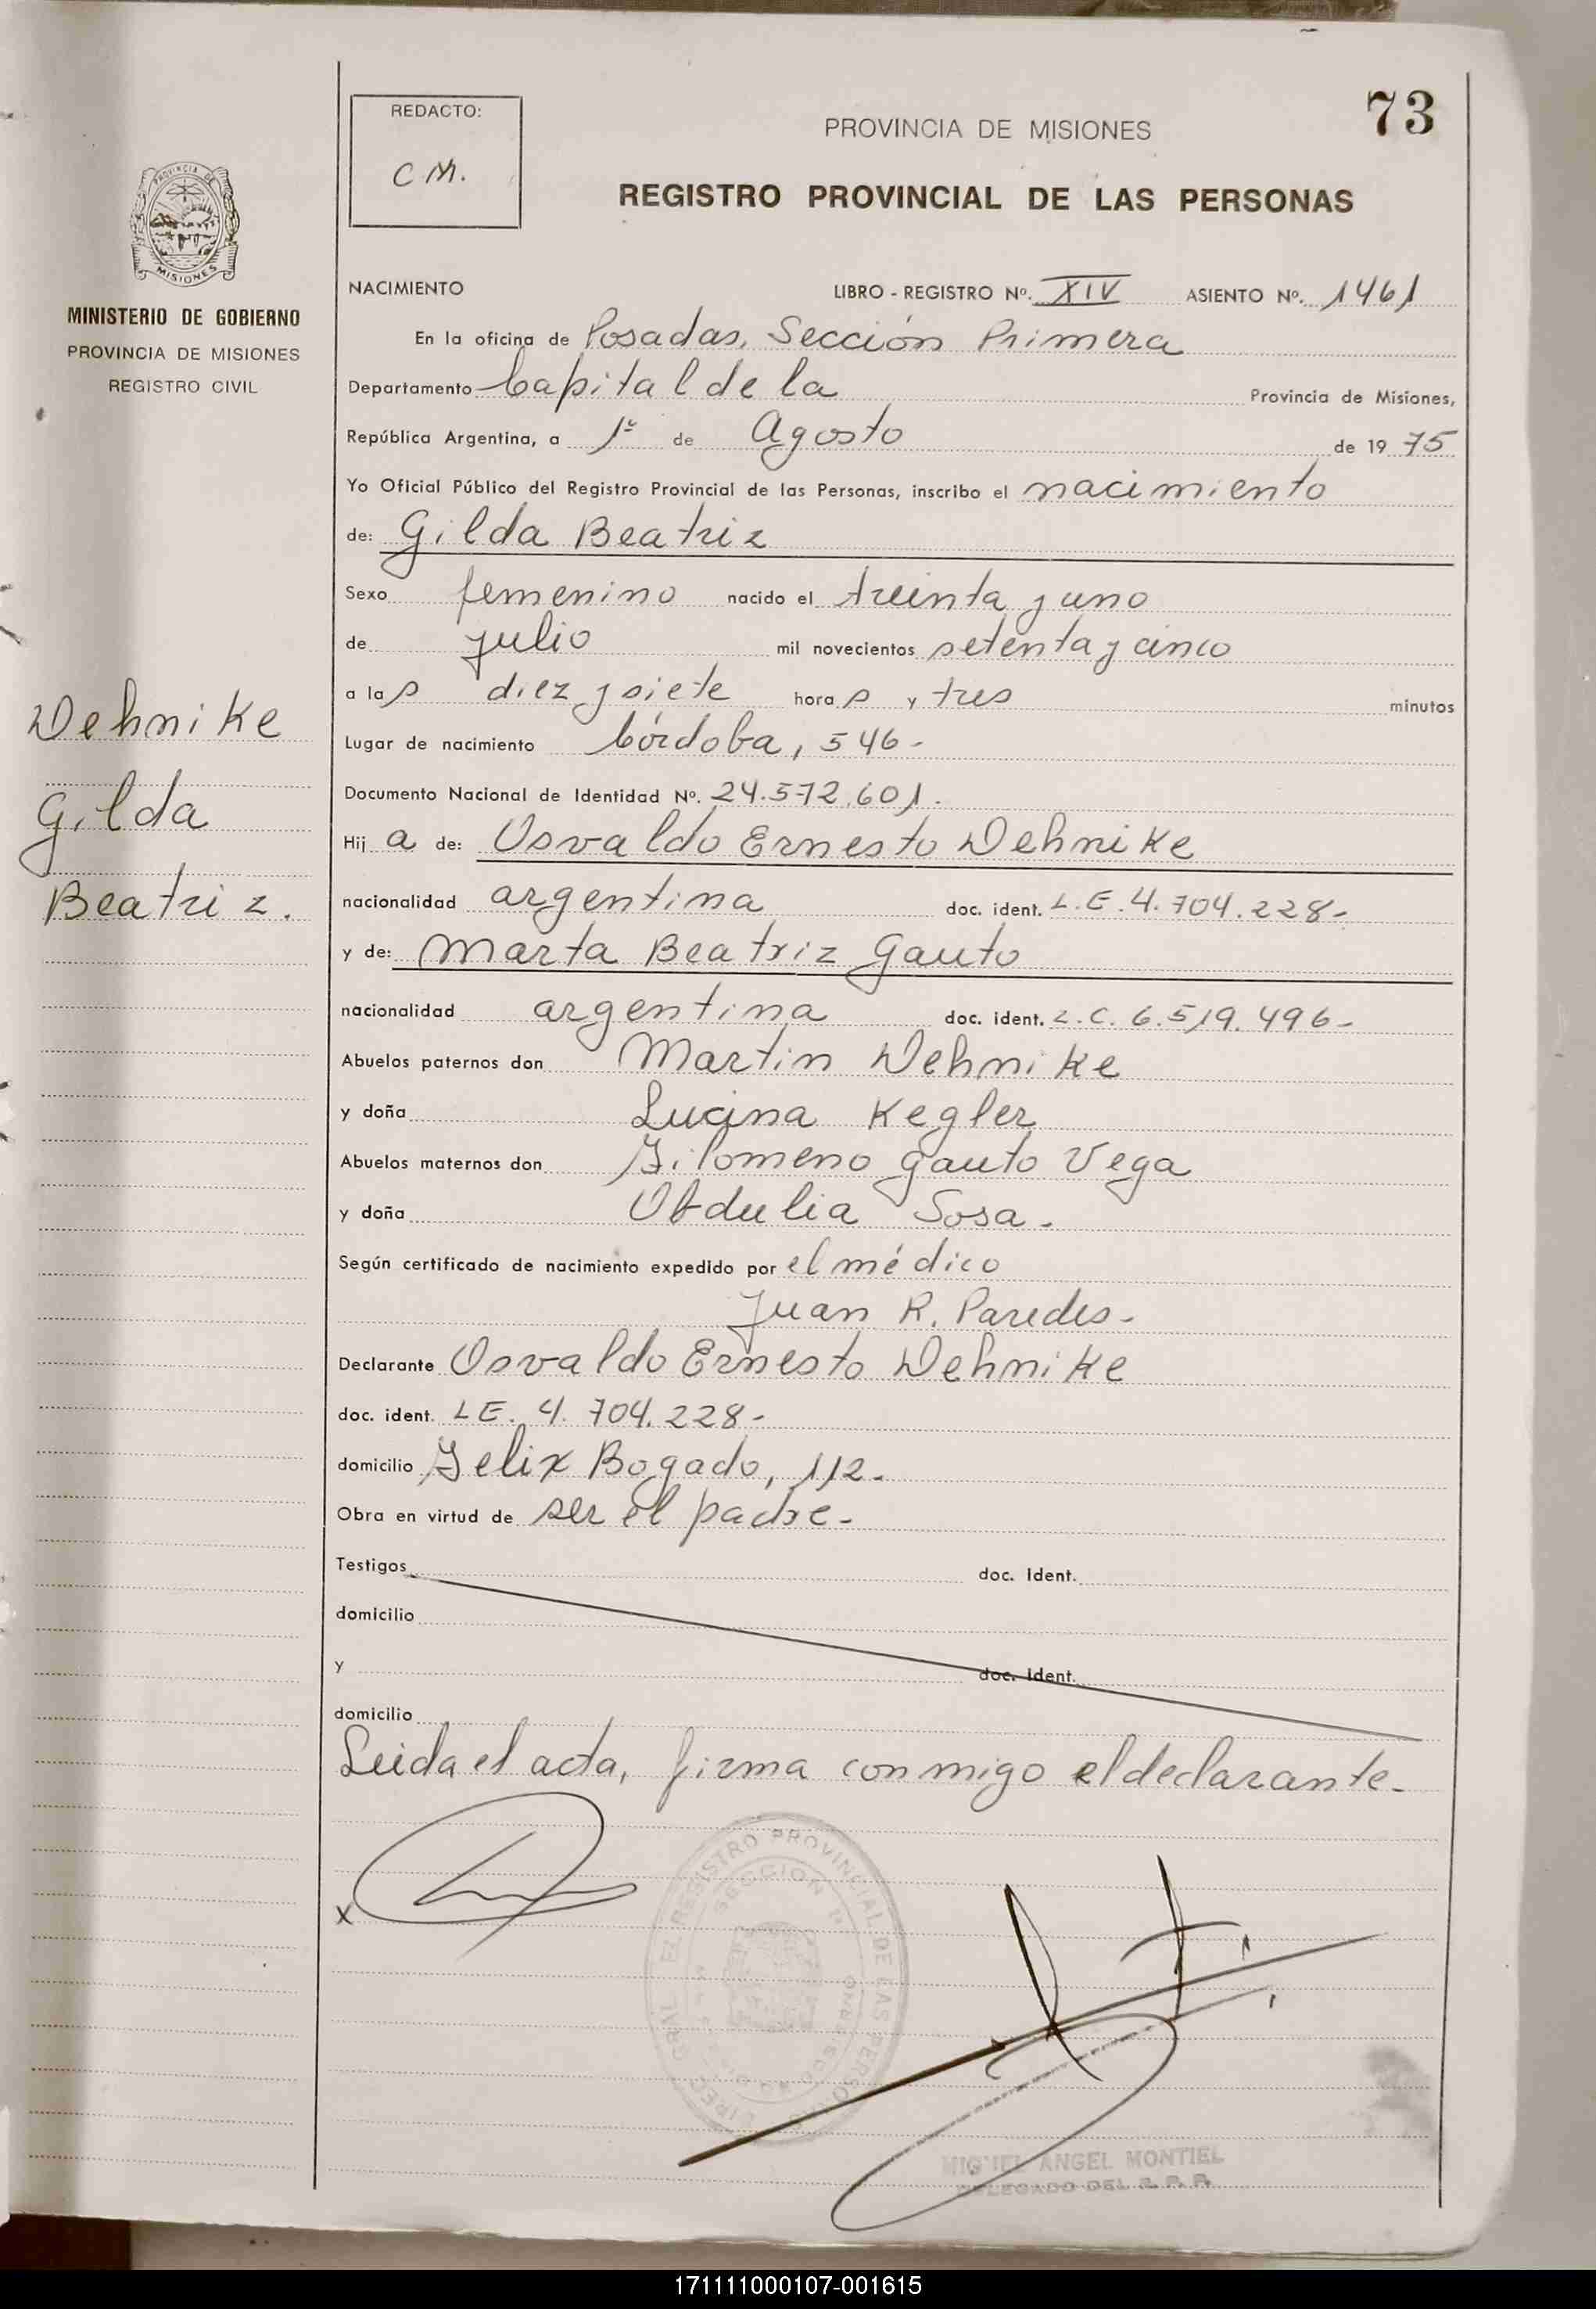 73
REDACTO:
C M.
PROVINCIA DE MISIONES
REGISTRO PROVINCIAL DE LAS PERSONAS
PROVINCIA DE
MISIONES
MINISTERIO DE GOBIERNO
PROVINCIA DE MISIONES
REGISTRO CIVIL
Dehnike
Gilda
Beatriz.
NACIMIENTO LIBRO - REGISTRO Nº. XIV ASIENTO Nº. 1461
En la oficina de Posadas, Sección Primera
Departamento Capital de la Provincia de Misiones,
República Argentina, a 1º de Agosto de 19 75
Yo Oficial Público del Registro Provincial de las Personas, inscribo el nacimiento
de: Gilda Beatriz
Sexo femenino nacido el treinta y uno
de julio mil novecientos setenta y cinco
a las diez y siete horas y tres minutos
Lugar de nacimiento Córdoba, 546-
Documento Nacional de Identidad Nº. 24.572.601.
Hij a de: Osvaldo Ernesto Dehnike
nacionalidad argentina doc. ident. L.E. 4.704.228-
y de: Marta Beatriz Gauto
nacionalidad argentina doc. ident. L.C. 6.519.496-
Abuelos paternos don Martin Dehnike
y doña Lucina Kegler
Abuelos maternos don Filomeno Gauto Vega
y doña Obdulia Sosa-
Según certificado de nacimiento expedido por el médico
Juan R. Paredes-
Declarante Osvaldo Ernesto Dehnike
doc. ident. LE. 4.704.228-
domicilio Felix Bogado, 112-
Obra en virtud de ser el padre-
Testigos doc. Ident.
domicilio
y doc. Ident.
domicilio
Leida el acta, firma conmigo el declarante-
x
REGISTRO PROVINCIAL DE LAS PERSONAS
SECCION 1ª
MIGUEL ANGEL MONTIEL
DELEGADO DEL R. P. P.
171111000107-001615